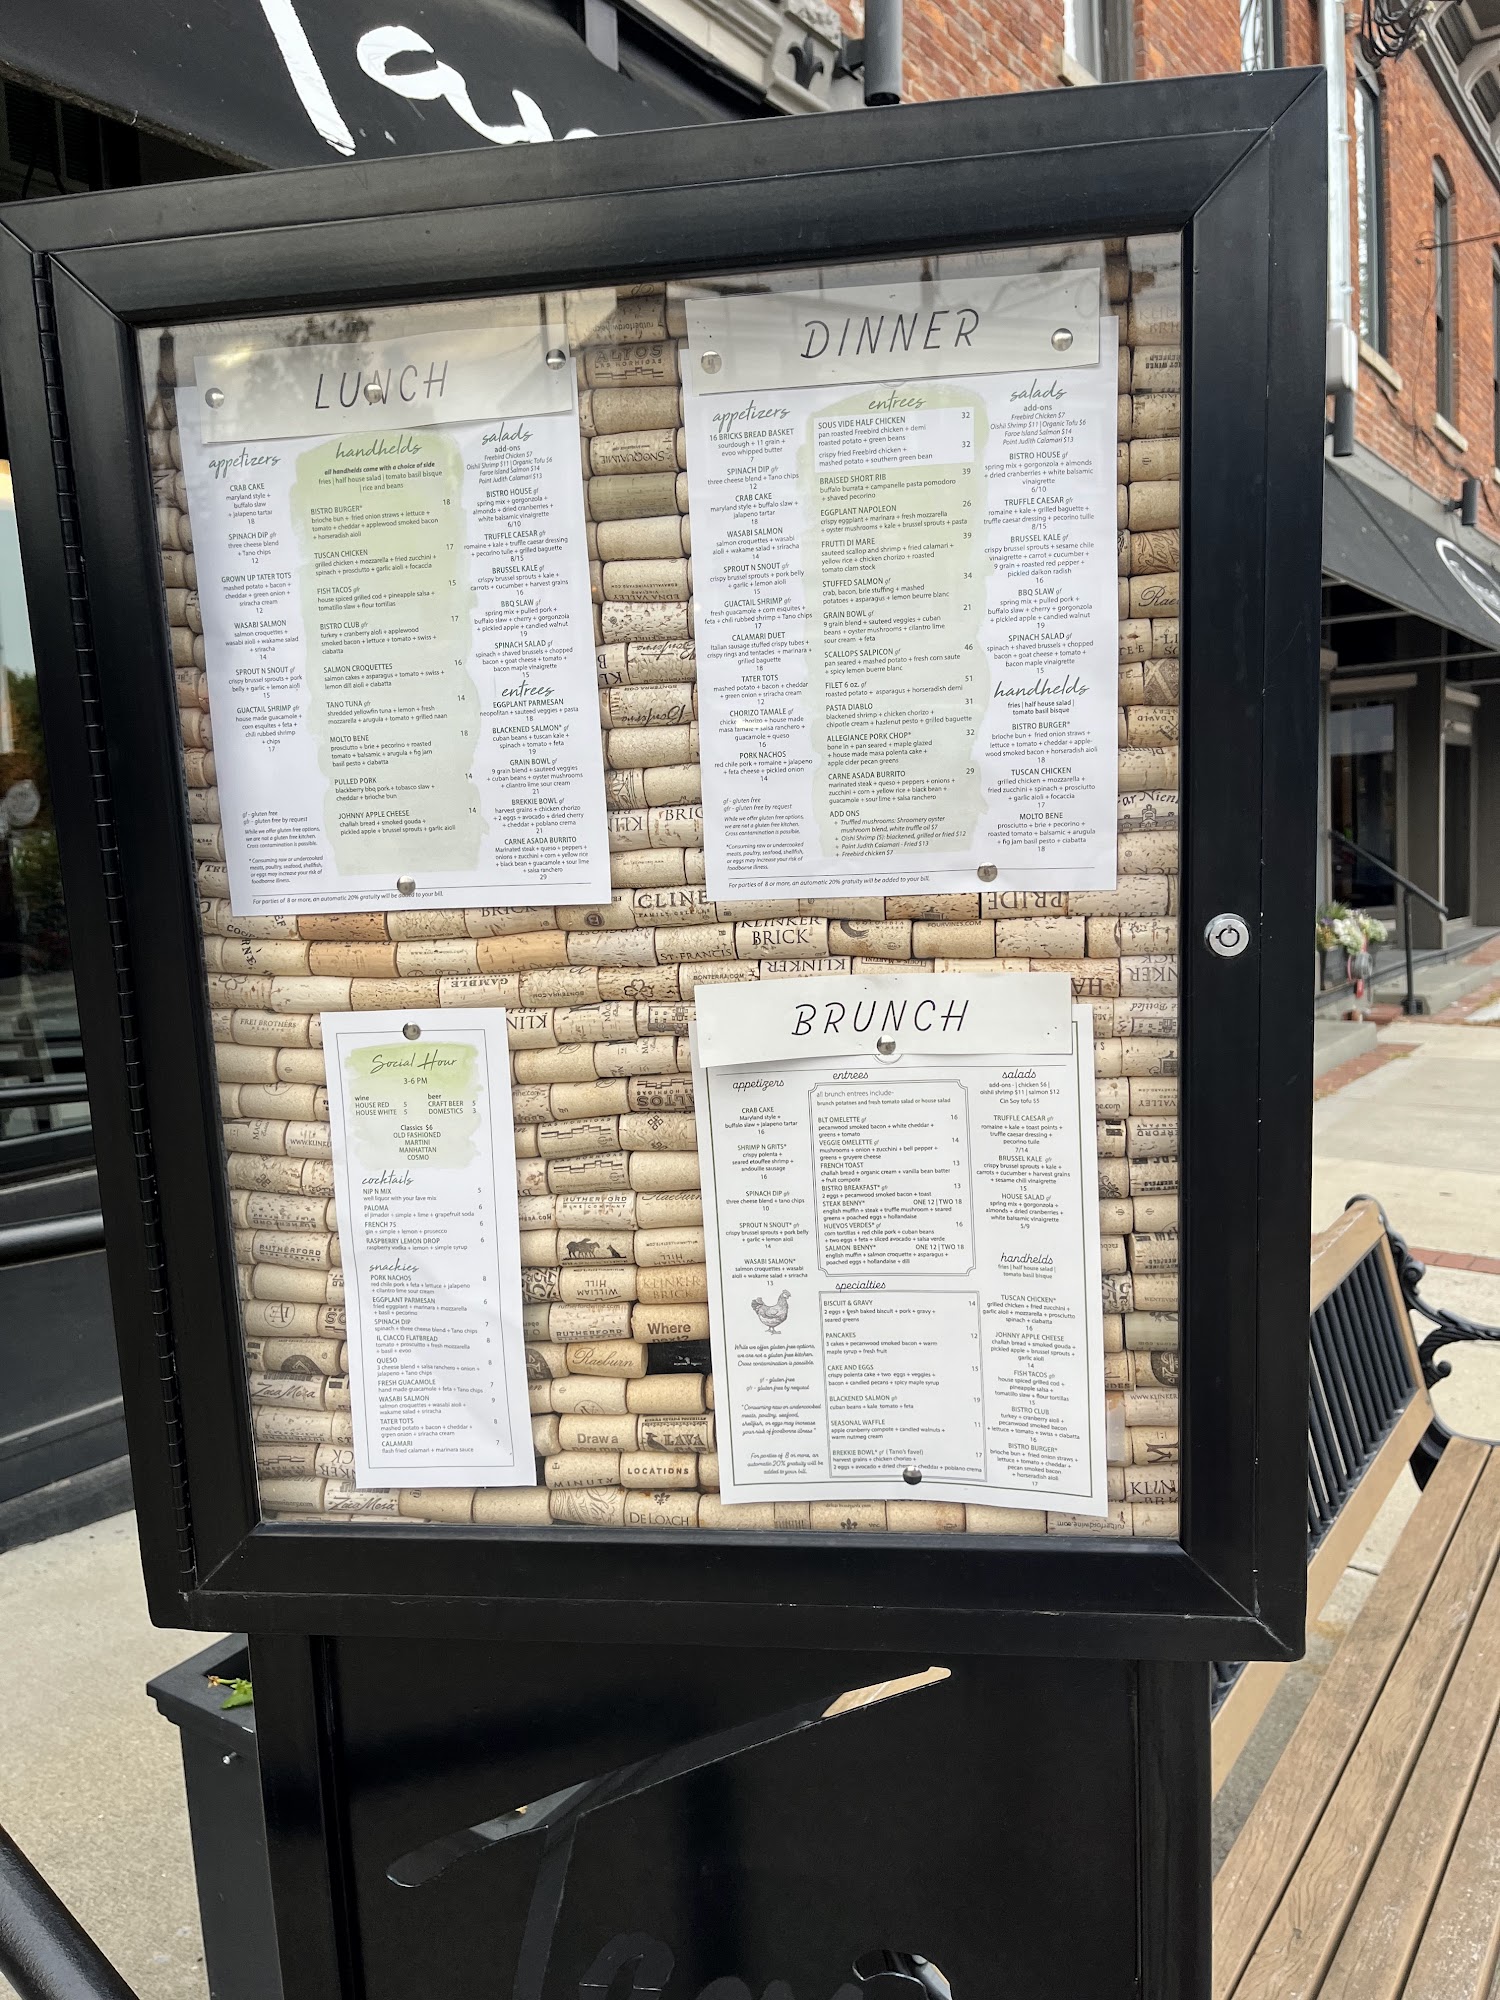 Tano
LUNCH
appetizers
CRAB CAKE
maryland style +
buffalo slaw
+ jalapeno tartar
18
SPINACH DIP gfr
three cheese blend
+ Tano chips
12
GROWN UP TATER TOTS
mashed potato + bacon +
cheddar + green onion +
sriracha cream
12
WASABI SALMON
salmon croquettes +
wasabi aioli + wakame salad
+ sriracha
14
SPROUT N SNOUT gf
crispy brussel sprouts + pork
belly + garlic + lemon aioli
15
GUACTAIL SHRIMP gfr
house made guacamole +
corn esquites + feta +
chili rubbed shrimp
+ chips
17
gf - gluten free
gfr - gluten free by request
While we offer gluten free options,
we are not a gluten free kitchen.
Cross contamination is possible.
*Consuming raw or undercooked
meats, poultry, seafood, shellfish,
or eggs may increase your risk of
foodborne illness.
handhelds
all handhelds come with a choice of side
fries | half house salad | tomato basil bisque
| rice and beans
BISTRO BURGER* 18
brioche bun + fried onion straws + lettuce +
tomato + cheddar + applewood smoked bacon
+ horseradish aioli
TUSCAN CHICKEN 17
grilled chicken + mozzarella + fried zucchini +
spinach + prosciutto + garlic aioli + focaccia
FISH TACOS gfr 15
house spiced grilled cod + pineapple salsa +
tomatillo slaw + flour tortillas
BISTRO CLUB 17
turkey + cranberry aioli + applewood
smoked bacon + lettuce + tomato + swiss +
ciabatta
SALMON CROQUETTES 16
salmon cakes + asparagus + tomato + swiss +
lemon dill aioli + ciabatta
TANO TUNA gfr 14
shredded yellowfin tuna + lemon + fresh
mozzarella + arugula + tomato + grilled naan
MOLTO BENE 18
prosciutto + brie + pecorino + roasted
tomato + balsamic + arugula + fig jam
basil pesto + ciabatta
PULLED PORK 14
blackberry bbq pork + tobasco slaw +
cheddar + brioche bun
JOHNNY APPLE CHEESE 14
challah bread + smoked gouda +
pickled apple + brussel sprouts + garlic aioli
salads
add-ons
Freebird Chicken $7
Oishii Shrimp $11 | Organic Tofu $6
Faroe Island Salmon $14
Point Judith Calamari $13
BISTRO HOUSE gf
spring mix + gorgonzola +
almonds + dried cranberries +
white balsamic vinaigrette
6/10
TRUFFLE CAESAR gfr
romaine + kale + truffle caesar dressing
+ pecorino tuile + grilled baguette
8/15
BRUSSEL KALE gf
crispy brussel sprouts + kale +
carrots + cucumber + harvest grains
16
BBQ SLAW gf
spring mix + pulled pork +
buffalo slaw + cherry + gorgonzola
+ pickled apple + candied walnut
19
SPINACH SALAD gf
spinach + shaved brussels + chopped
bacon + goat cheese + tomato +
bacon maple vinaigrette
15
entrees
EGGPLANT PARMESAN
neopolitan + sauteed veggies + pasta
18
BLACKENED SALMON* gf
cuban beans + tuscan kale +
spinach + tomato + feta
19
GRAIN BOWL gf
9 grain blend + sauteed veggies
+ cuban beans + oyster mushrooms
+ cilantro lime sour cream
21
BREKKIE BOWL gf
harvest grains + chicken chorizo
+ 2 eggs + avocado + dried cherry
+ cheddar + poblano crema
21
CARNE ASADA BURRITO
Marinated steak + queso + peppers +
onions + zucchini + corn + yellow rice
+ black bean + guacamole + sour lime
+ salsa ranchero
29
For parties of 8 or more, an automatic 20% gratuity will be added to your bill.
DINNER
appetizers
16 BRICKS BREAD BASKET
sourdough + 11 grain +
evoo whipped butter
7
SPINACH DIP gfr
three cheese blend + Tano chips
12
CRAB CAKE
maryland style + buffalo slaw +
jalapeno tartar
18
WASABI SALMON
salmon croquettes + wasabi
aioli + wakame salad + sriracha
14
SPROUT N SNOUT gf
crispy brussel sprouts + pork belly
+ garlic + lemon aioli
15
GUACTAIL SHRIMP gfr
fresh guacamole + corn esquites +
feta + chili rubbed shrimp + Tano chips
17
CALAMARI DUET
Italian sausage stuffed crispy tubes +
crispy rings and tentacles + marinara +
grilled baguette
18
TATER TOTS
mashed potato + bacon + cheddar
+ green onion + sriracha
12
CHORIZO TAMALE gf
chicken chorizo + house made
masa tamale + salsa ranchero +
guacamole + queso
16
PORK NACHOS
red chile pork + romaine + jalapeno
+ feta cheese + pickled onion
14
gf - gluten free
gfr - gluten free by request
While we offer gluten free options,
we are not a gluten free kitchen.
Cross contamination is possible.
*Consuming raw or undercooked
meats, poultry, seafood, shellfish,
or eggs may increase your risk of
foodborne illness.
entrees
SOUS VIDE HALF CHICKEN 32
pan roasted Freebird chicken + demi
roasted potato + green beans
32
crispy fried Freebird chicken +
mashed potato + southern green bean
BRAISED SHORT RIB 39
buffalo burrata + campanelle pasta pomodoro
+ shaved pecorino
EGGPLANT NAPOLEON 26
crispy eggplant + marinara + fresh mozzarella
+ oyster mushrooms + kale + brussel sprouts + pasta
FRUTTI DI MARE 39
sauteed scallop and shrimp + fried calamari +
yellow rice + chicken chorizo + roasted
tomato clam stock
STUFFED SALMON gf 34
crab, bacon, brie stuffing + mashed
potatoes + asparagus + lemon beurre blanc
GRAIN BOWL gf 21
9 grain blend + sauteed veggies + cuban
beans + oyster mushrooms + cilantro lime
sour cream + feta
SCALLOPS SALPICON gf 46
pan seared + mashed potato + fresh corn saute
+ spicy lemon buerre blanc
FILET 6 oz. gf 51
roasted potato + asparagus + horseradish demi
PASTA DIABLO 31
blackened shrimp + chicken chorizo +
chipotle cream + hazlenut pesto + grilled baguette
ALLEGIANCE PORK CHOP* 32
bone in + pan seared + maple glazed
+ house made masa polenta cake +
apple cider pecan greens
CARNE ASADA BURRITO 29
marinated steak + queso + peppers + onions +
zucchini + corn + yellow rice + black bean +
guacamole + sour lime + salsa ranchero
ADD ONS
+ Truffled mushrooms: Shroomery oyster
mushroom blend, white truffle oil $7
+ Oishi Shrimp (5): blackened, grilled or fried $12
+ Point Judith Calamari - Fried $13
+ Freebird chicken $7
salads
add-ons
Freebird Chicken $7
Oishii Shrimp $11 | Organic Tofu $6
Faroe Island Salmon $14
Point Judith Calamari $13
BISTRO HOUSE gf
spring mix + gorgonzola + almonds
+ dried cranberries + white balsamic
vinaigrette
6/10
TRUFFLE CAESAR gfr
romaine + kale + grilled baguette +
truffle caesar dressing + pecorino tuille
8/15
BRUSSEL KALE gf
crispy brussel sprouts + sesame chile
vinaigrette + carrot + cucumber +
9 grain + roasted red pepper +
pickled daikon radish
16
BBQ SLAW gf
spring mix + pulled pork +
buffalo slaw + cherry + gorgonzola
+ pickled apple + candied walnut
19
SPINACH SALAD gf
spinach + shaved brussels + chopped
bacon + goat cheese + tomato +
bacon maple vinaigrette
15
handhelds
fries | half house salad |
tomato basil bisque
BISTRO BURGER*
brioche bun + fried onion straws +
lettuce + tomato + cheddar + apple-
wood smoked bacon + horseradish aioli
18
TUSCAN CHICKEN
grilled chicken + mozzarella +
fried zucchini + spinach + prosciutto
+ garlic aioli + focaccia
17
MOLTO BENE
prosciutto + brie + pecorino +
roasted tomato + balsamic + arugula
+ fig jam basil pesto + ciabatta
18
For parties of 8 or more, an automatic 20% gratuity will be added to your bill.
Social Hour
3-6 PM
wine
HOUSE RED 5
HOUSE WHITE 5
beer
CRAFT BEER 5
DOMESTICS 3
Classics $6
OLD FASHIONED
MARTINI
MANHATTAN
COSMO
cocktails
NIP N MIX 5
well liquor with your fave mix
PALOMA 6
el jimador + simple + lime + grapefruit soda
FRENCH 75 6
gin + simple + lemon + prosecco
RASPBERRY LEMON DROP 6
raspberry vodka + lemon + simple syrup
snackies
PORK NACHOS 8
red chile pork + feta + lettuce + jalapeno
+ cilantro lime sour cream
EGGPLANT PARMESAN 6
fried eggplant + marinara + mozzarella
+ basil + pecorino
SPINACH DIP 7
spinach + three cheese blend + Tano chips
IL CIACCO FLATBREAD 8
tomato + prosciutto + fresh mozzarella
+ basil + evoo
QUESO 8
3 cheese blend + salsa ranchero + onion +
jalapeno + Tano chips
FRESH GUACAMOLE 7
hand made guacamole + feta + Tano chips
WASABI SALMON 9
salmon croquettes + wasabi aioli +
wakame salad + sriracha
TATER TOTS 8
mashed potato + bacon + cheddar +
green onion + sriracha cream
CALAMARI 7
flash fried calamari + marinara sauce
BRUNCH
appetizers
CRAB CAKE
Maryland style +
buffalo slaw + jalapeno tartar
16
SHRIMP N GRITS*
crispy polenta +
seared etouffee shrimp +
andouille sausage
16
SPINACH DIP gfr
three cheese blend + tano chips
10
SPROUT N SNOUT* gfr
crispy brussel sprouts + pork belly
+ garlic + lemon aioli
14
WASABI SALMON*
salmon croquettes + wasabi
aioli + wakame salad + sriracha
13
While we offer gluten free options,
we are not a gluten free kitchen.
Cross contamination is possible.
gf - gluten free
gfr - gluten free by request
*Consuming raw or undercooked
meats, poultry, seafood,
shellfish, or eggs may increase
your risk of foodborne illness*
For parties of 8 or more, an
automatic 20% gratuity will be
added to your bill.
entrees
all brunch entrees include-
brunch potatoes and fresh tomato salad or house salad
BLT OMELETTE gf 16
pecanwood smoked bacon + white cheddar +
greens + tomato
VEGGIE OMELETTE gf 14
mushrooms + onion + zucchini + bell pepper +
greens + gruyere cheese
FRENCH TOAST 13
challah bread + organic cream + vanilla bean batter
+ fruit compote
BISTRO BREAKFAST* gfr 13
2 eggs + pecanwood smoked bacon + toast
STEAK BENNY* ONE 12 | TWO 18
english muffin + steak + truffle mushroom + seared
greens + poached eggs + hollandaise
HUEVOS VERDES* gf 16
corn tortillas + red chile pork + cuban beans
+ two eggs + feta + sliced avocado + salsa verde
SALMON BENNY* ONE 12 | TWO 18
english muffin + salmon croquette + asparagus +
poached eggs + hollandaise + dill
specialties
BISCUIT & GRAVY 14
2 eggs + fresh baked biscuit + pork + gravy +
seared greens
PANCAKES 12
3 cakes + pecanwood smoked bacon + warm
maple syrup + fresh fruit
CAKE AND EGGS 15
crispy polenta cake + two eggs + veggies +
bacon + candied pecans + spicy maple syrup
BLACKENED SALMON gfr 19
cuban beans + kale + tomato + feta
SEASONAL WAFFLE 11
apple cranberry compote + candied walnuts +
warm nutmeg cream
BREKKIE BOWL* gf (Tano's fave!) 17
harvest grains + chicken chorizo +
2 eggs + avocado + dried cherry + cheddar + poblano crema
salads
add-ons - | chicken $6 |
oishii shrimp $11 | salmon $12
Cin Soy tofu $5
TRUFFLE CAESAR gfr
romaine + kale + toast points +
truffle caesar dressing +
pecorino tuile
7/14
BRUSSEL KALE gf
crispy brussel sprouts + kale +
carrots + cucumber + harvest grains
+ sesame chili vinaigrette
15
HOUSE SALAD gf
spring mix + gorgonzola +
almonds + dried cranberries +
white balsamic vinaigrette
5/9
handhelds
fries | half house salad |
tomato basil bisque
TUSCAN CHICKEN*
grilled chicken + fried zucchini +
garlic aioli + mozzarella + prosciutto +
spinach + ciabatta
16
JOHNNY APPLE CHEESE
challah bread + smoked gouda +
pickled apple + brussel sprouts +
garlic aioli
14
FISH TACOS gf
house spiced grilled cod +
pineapple salsa +
tomatillo slaw + flour tortillas
15
BISTRO CLUB
turkey + cranberry aioli +
pecanwood smoked bacon
+ lettuce + tomato + swiss + ciabatta
16
BISTRO BURGER*
brioche bun + fried onion straws +
lettuce + tomato + cheddar +
pecan smoked bacon
+ horseradish aioli
17
ALTOS
LAS HORMIGAS
SNOQUALMIE
EDNA VALLEY
BONTERRA.COM
BRICK
CLINE
PRIDE
KLINKER
BRICK
ST-FRANCIS
GAMBLE
BONTERRA.COM
KLINKER
FREI BROTHERS
RUTHERFORD
WINE COMPANY
RUTHERFORD
WILLIAM
HILL
KLINKER
BRICK
Where
next?
Raeburn
Zaca Mesa
Draw a
LAVA
LOCATIONS
MINUTY
Zaca Mesa
DELOACH
Tano